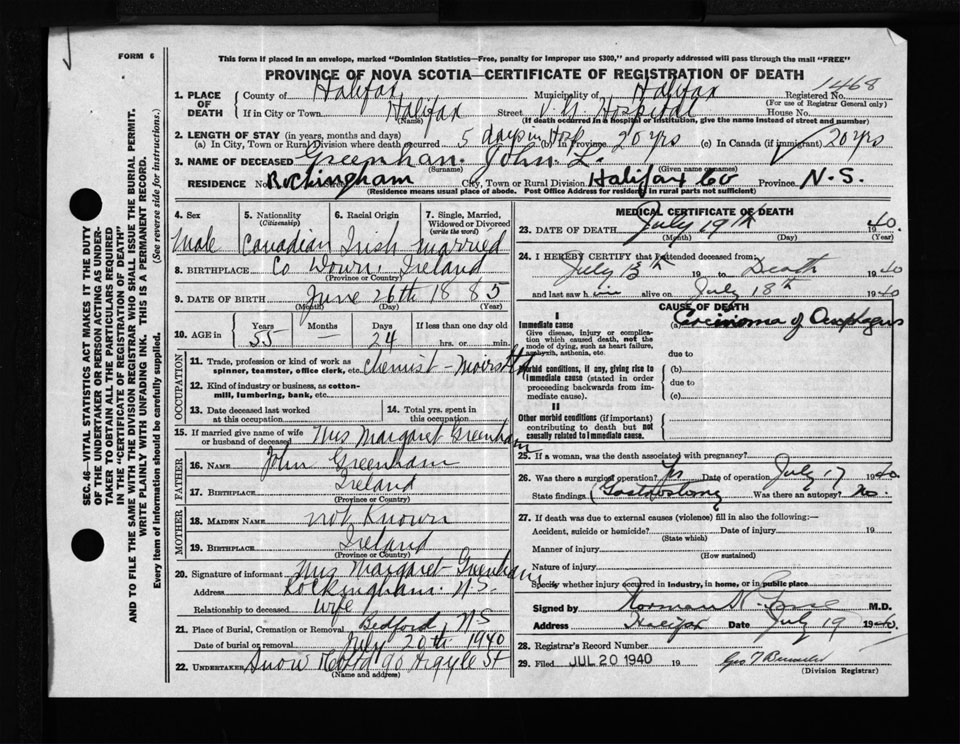 FORM 6
This form if placed in an envelope, marked "Dominion Statistics—Free, penalty for improper use $300," and properly addressed will pass through the mail "FREE"
PROVINCE OF NOVA SCOTIA—CERTIFICATE OF REGISTRATION OF DEATH
1468
1. PLACE OF DEATH County of Halifax Municipality of Halifax Registered No.
(For use of Registrar General only)
If in City or Town Halifax Street V.G. Hospital House No.
(Name) (If death occurred in a hospital or institution, give the name instead of street and number)
2. LENGTH OF STAY (in years, months and days)
(a) In City, Town or Rural Division where death occurred 5 days in Hosp (b) In Province 20 yrs (c) In Canada (if immigrant) 20 yrs
3. NAME OF DECEASED Greenham John L.
(Surname) (Given name or names)
RESIDENCE No. Rockingham City, Town or Rural Division Halifax Co Province N.S.
(Residence means usual place of abode. Post Office Address for resident in rural parts not sufficient)
4. Sex 5. Nationality (Citizenship) 6. Racial Origin 7. Single, Married, Widowed or Divorced (write the word)
Male Canadian Irish Married
8. BIRTHPLACE Co Down, Ireland
(Province or Country)
9. DATE OF BIRTH June 26th 1885
(Month) (Day) (Year)
10. AGE in Years Months Days If less than one day old
55 — 24 hrs. or min.
OCCUPATION
11. Trade, profession or kind of work as spinner, teamster, office clerk, etc. Chemist - Moirs Ltd
12. Kind of industry or business, as cotton-mill, lumbering, bank, etc.
13. Date deceased last worked at this occupation
14. Total yrs. spent in this occupation
15. If married give name of wife or husband of deceased Mrs Margaret Greenham
FATHER
16. NAME John Greenham
17. BIRTHPLACE Ireland
(Province or Country)
MOTHER
18. MAIDEN NAME not Known
19. BIRTHPLACE Ireland
(Province or Country)
20. Signature of informant Mrs Margaret Greenham
Address Rockingham. N.S.
Relationship to deceased wife
21. Place of Burial, Cremation or Removal Bedford, N.S
Date of burial or removal July 20th 1940
22. UNDERTAKER Snow 90 Argyle St
(Name and address)
MEDICAL CERTIFICATE OF DEATH
23. DATE OF DEATH July 19th 1940.
(Month) (Day) (Year)
24. I HEREBY CERTIFY that I attended deceased from:
July 13th 19 to Death 1940
and last saw him alive on July 18th 1940
CAUSE OF DEATH
I
Immediate cause (a) Carcinoma of Oesophagus
Give disease, injury or complication which caused death, not the mode of dying, such as heart failure, asphyxia, asthenia, etc.
due to
Morbid conditions, if any, giving rise to immediate cause (stated in order proceeding backwards from immediate cause).
(b)
due to
(c)
II
Other morbid conditions (if important) contributing to death but not causally related to immediate cause.
25. If a woman, was the death associated with pregnancy?
26. Was there a surgical operation? Yes Date of operation July 17 1940.
State findings Gastrostomy Was there an autopsy? No.
27. If death was due to external causes (violence) fill in also the following:—
Accident, suicide or homicide? Date of injury 19
(State which)
Manner of injury
(How sustained)
Nature of injury
Specify whether injury occurred in industry, in home, or in public place
Signed by Norman M.D.
Address Halifax Date July 19 1940.
28. Registrar's Record Number
29. Filed JUL 20 1940 19
(Division Registrar)
SEC. 46—VITAL STATISTICS ACT MAKES IT THE DUTY OF THE UNDERTAKER OR PERSON ACTING AS UNDERTAKER TO OBTAIN ALL THE PARTICULARS REQUIRED IN THE "CERTIFICATE OF REGISTRATION OF DEATH" AND TO FILE THE SAME WITH THE DIVISION REGISTRAR WHO SHALL ISSUE THE BURIAL PERMIT.
WRITE PLAINLY WITH UNFADING INK. THIS IS A PERMANENT RECORD.
Every item of information should be carefully supplied. (See reverse side for instructions.)